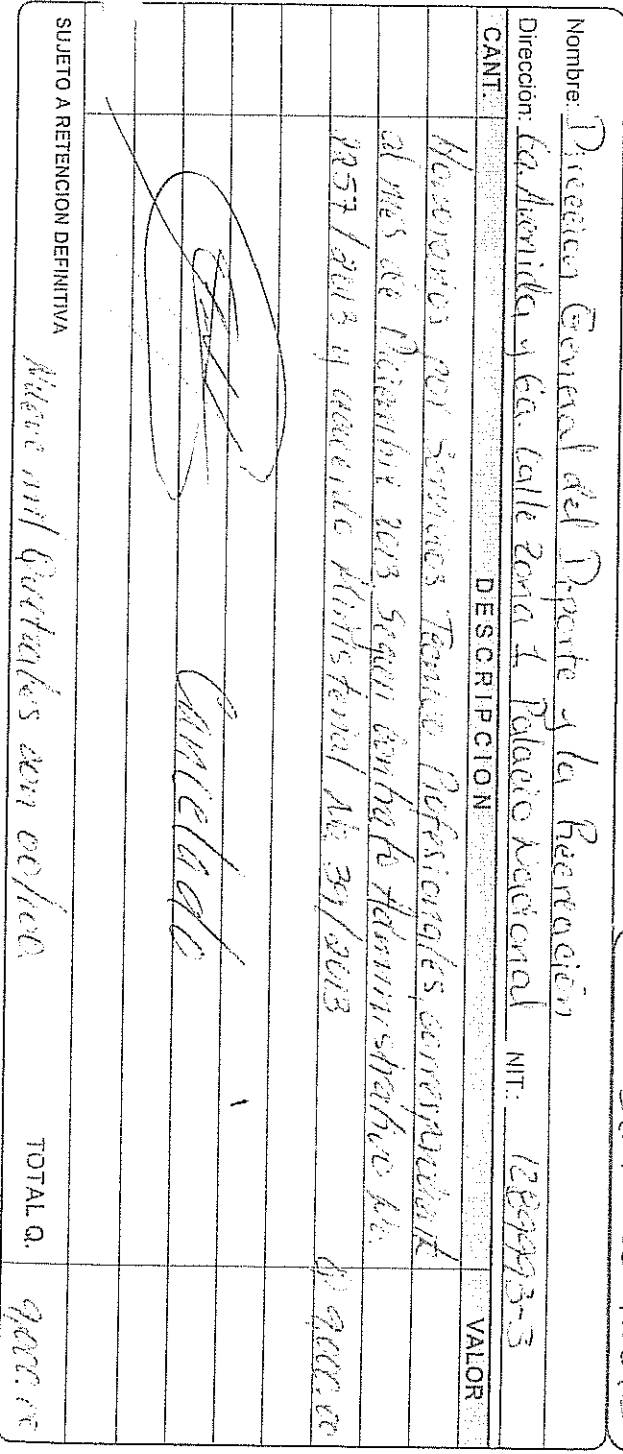 Nombre: Dirección General del Deporte y la Recreación
Dirección: 6a. Avenida y 6a. Calle Zona 1 Palacio Nacional NIT.: 1289993-3
CANT. DESCRIPCION VALOR
Honorarios por Servicios Tecnico Profesionales, correspondiente
al mes de Diciembre 2013 Segun Contrato Administrativo No.
1257/2013 y acuerdo Ministerial No 39/2013 Q 9,000.00
Cancelado
SUJETO A RETENCION DEFINITIVA Nueve mil Quetzales con 00/100 TOTAL Q. 9,000.00